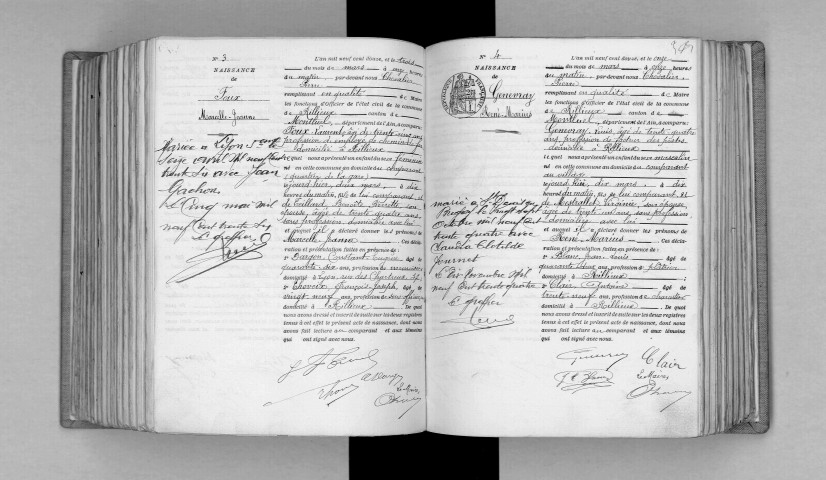 N° 3
NAISSANCE
de
Foux
Marcelle Jeanne
Mariée à Lyon
Seize avril mil neuf cent
trente six avec Jean
Le Cinq mai mil
neuf cent trente six
Le greffier
L'an mil neuf cent douze, et le trois
du mois de mars à onze heures
du matin, par-devant nous Chevalier
Pierre
remplissant en qualité de Maire
les fonctions d'officier de l'état civil de la commune
de Rillieux canton de
Montluel, département de l'Ain, a comparu
Foux âgé de trente cinq ans
profession d'employé de chemin de fer
domicilié à Rillieux
lequel nous a présenté un enfant du sexe féminin
né en cette commune au domicile du comparant
(quartier de la gare)
aujourd'hui, trois mars, à dix
heures du matin, né de lui comparant et
de Taillard Benoîte Pierrette son
épouse, âgée de trente quatre ans
sans profession domiciliée avec lui
et auquel il a déclaré donner les prénoms de
Marcelle Jeanne Ces décla-
ration et présentation faites en présence de
1° Dargon Constant Eugène âgé de
quarante six ans, profession de
domicilié à Lyon, rue des Chartreux
2° François Joseph âgé de
vingt neuf ans, profession de
domicilié à Rillieux De quoi
nous avons dressé et inscrit de suite sur les deux registres
tenus à cet effet le présent acte de naissance, dont nous
avons fait lecture au comparant et aux témoins
qui ont signé avec nous.
Le Maire
N° 4
NAISSANCE
de
Genevray
René Marius
marié à
le vingt sept
Octobre mil neuf cent
trente quatre avec
Claudia Clotilde
Journet
Le six Novembre mil
neuf cent trente quatre
Le greffier
L'an mil neuf cent douze, et le onze
du mois de mars à onze heures
du matin, par-devant nous Chevalier
Pierre
remplissant en qualité de Maire
les fonctions d'officier de l'état civil de la commune
de Rillieux canton de
Montluel, département de l'Ain, a comparu
Genevray Louis, âgé de trente quatre
ans, profession de facteur des postes
domicilié à Rillieux
lequel nous a présenté un enfant du sexe masculin
né en cette commune au domicile du comparant
au village
aujourd'hui, dix mars, à dix
heures du matin, né de lui comparant et
de Mestrallet Virginie, son épouse
âgée de trente un ans, sans profession
domiciliée avec lui
et auquel il a déclaré donner les prénoms de
René Marius Ces décla-
ration et présentation faites en présence de
1° Jean Louis âgé de
quarante ans, profession de
domicilié à Rillieux
2° Clair Antoine âgé de
trente neuf ans, profession de charretier
domicilié à Rillieux De quoi
nous avons dressé et inscrit de suite sur les deux registres
tenus à cet effet le présent acte de naissance, dont nous
avons fait lecture au comparant et aux témoins
qui ont signé avec nous.
Genevray Clair
Le Maire